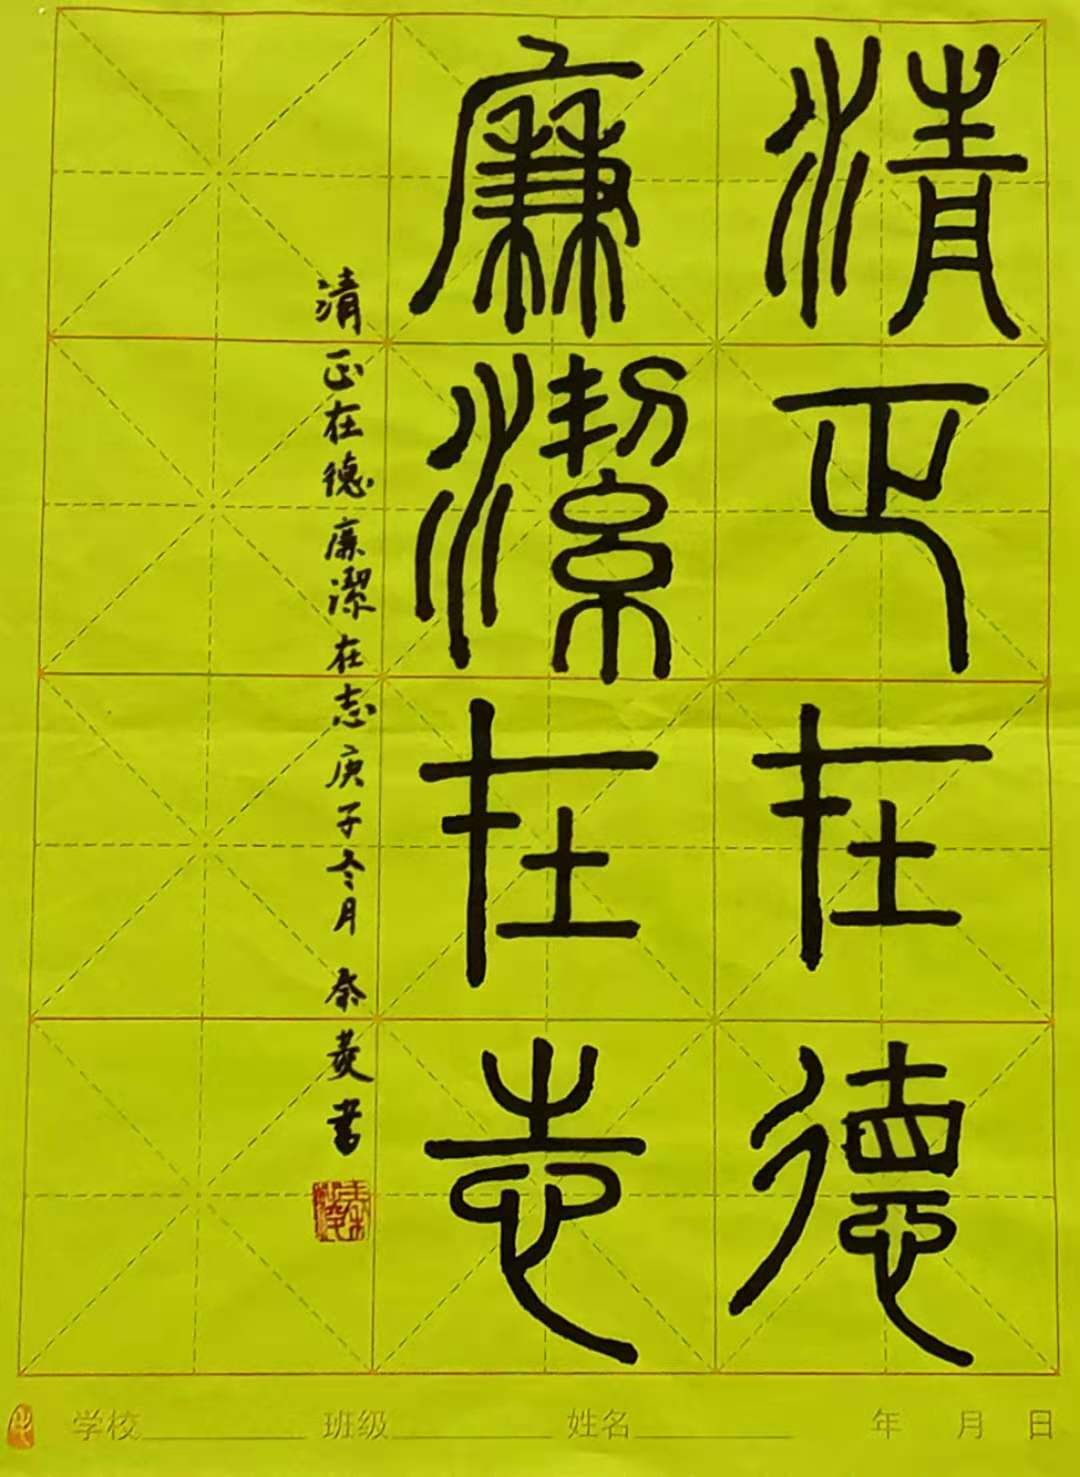 清正在德
廉潔在志
清正在德廉潔在志庚子冬月秦蓁書
学校 班级 姓名 年 月 日